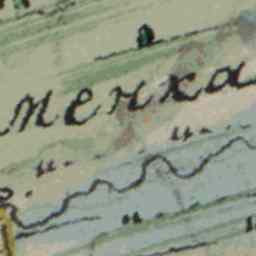 менха